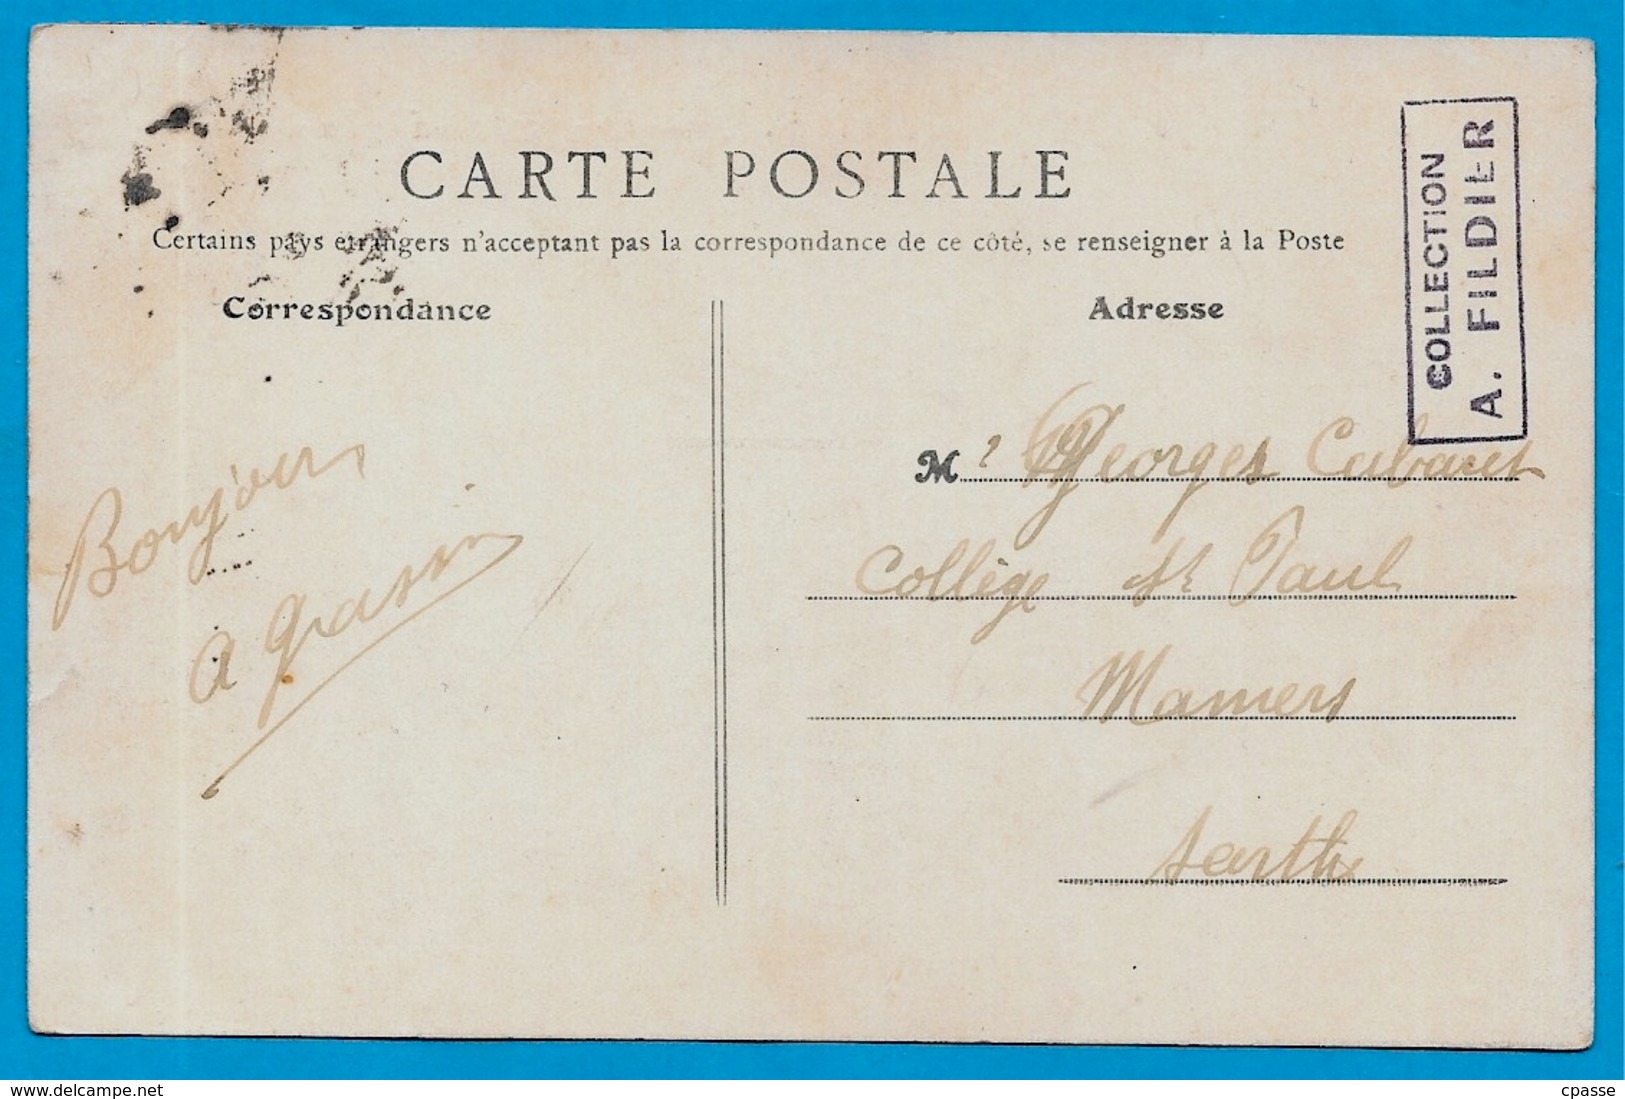 CARTE POSTALE
Certains pays étrangers n'acceptant pas la correspondance de ce côté, se renseigner à la Poste
Correspondance
Adresse
COLLECTION
A. FILDIER
Bonjour
A
Mr Georges
Collège St Paul
Mamers
Sarthe
www.delcampe.net
cpasse